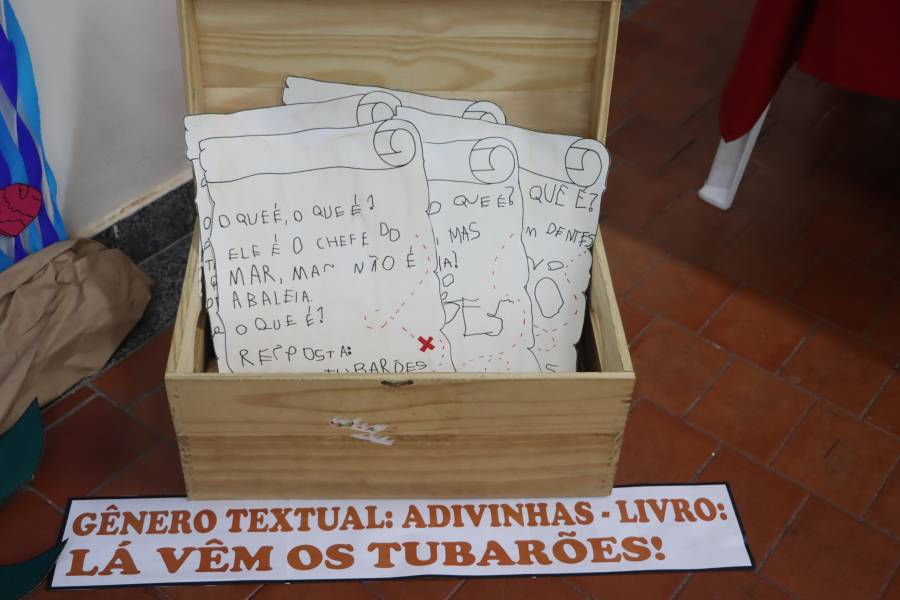 O QUE É, O QUE É?
ELE É O CHEFE DO
MAR, MAS NÃO É
A BALEIA.
O QUE É?
RESPOSTA:
TUBARÕES
O QUE É?
MAS
QUE É?
DENTES
GÊNERO TEXTUAL: ADIVINHAS - LIVRO:
LÁ VÊM OS TUBARÕES!